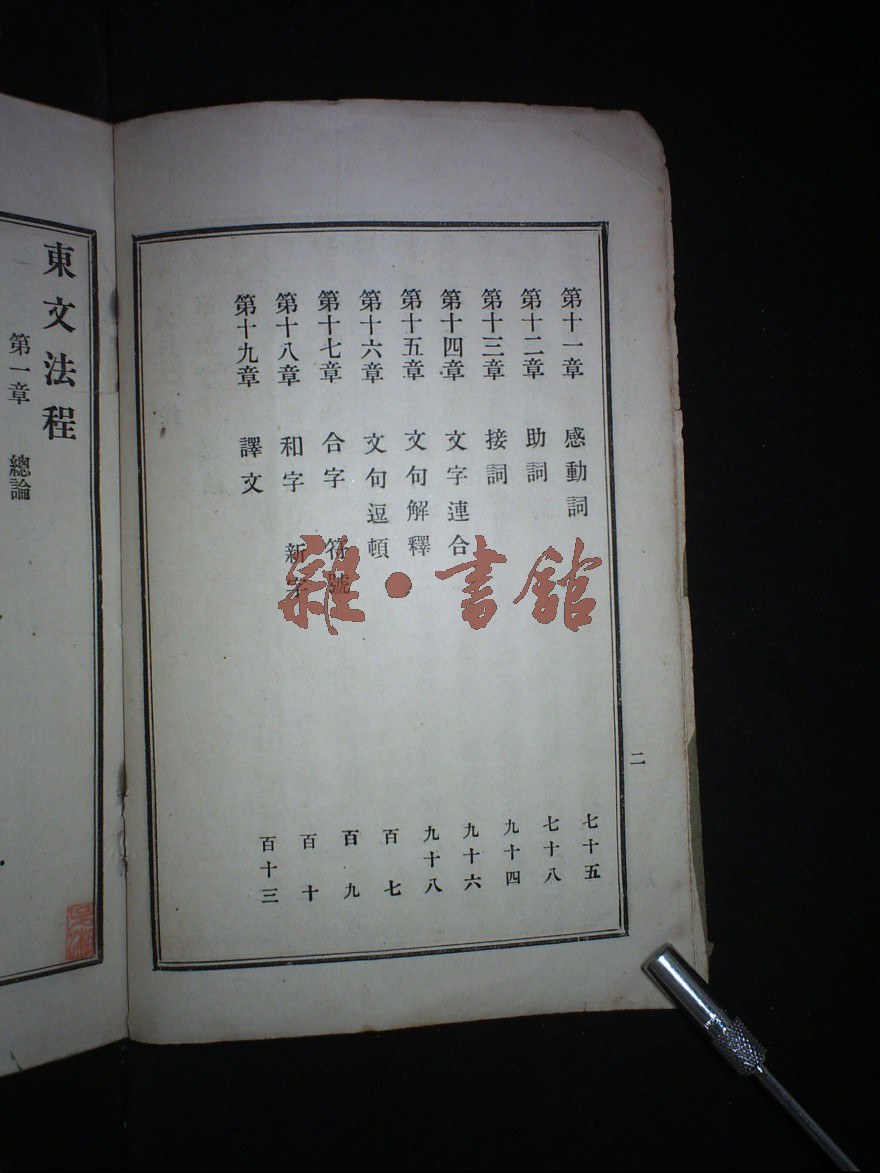 二
第十一章 感動詞 七十五
第十二章 助詞 七十八
第十三章 接詞 九十四
第十四章 文字連合 九十六
第十五章 文句解釋 九十八
第十六章 文句逗頓 百七
第十七章 合字 符號 百九
第十八章 和字 新字 百十
第十九章 譯文 百十三
東文法程
第一章 總論
雜·書館